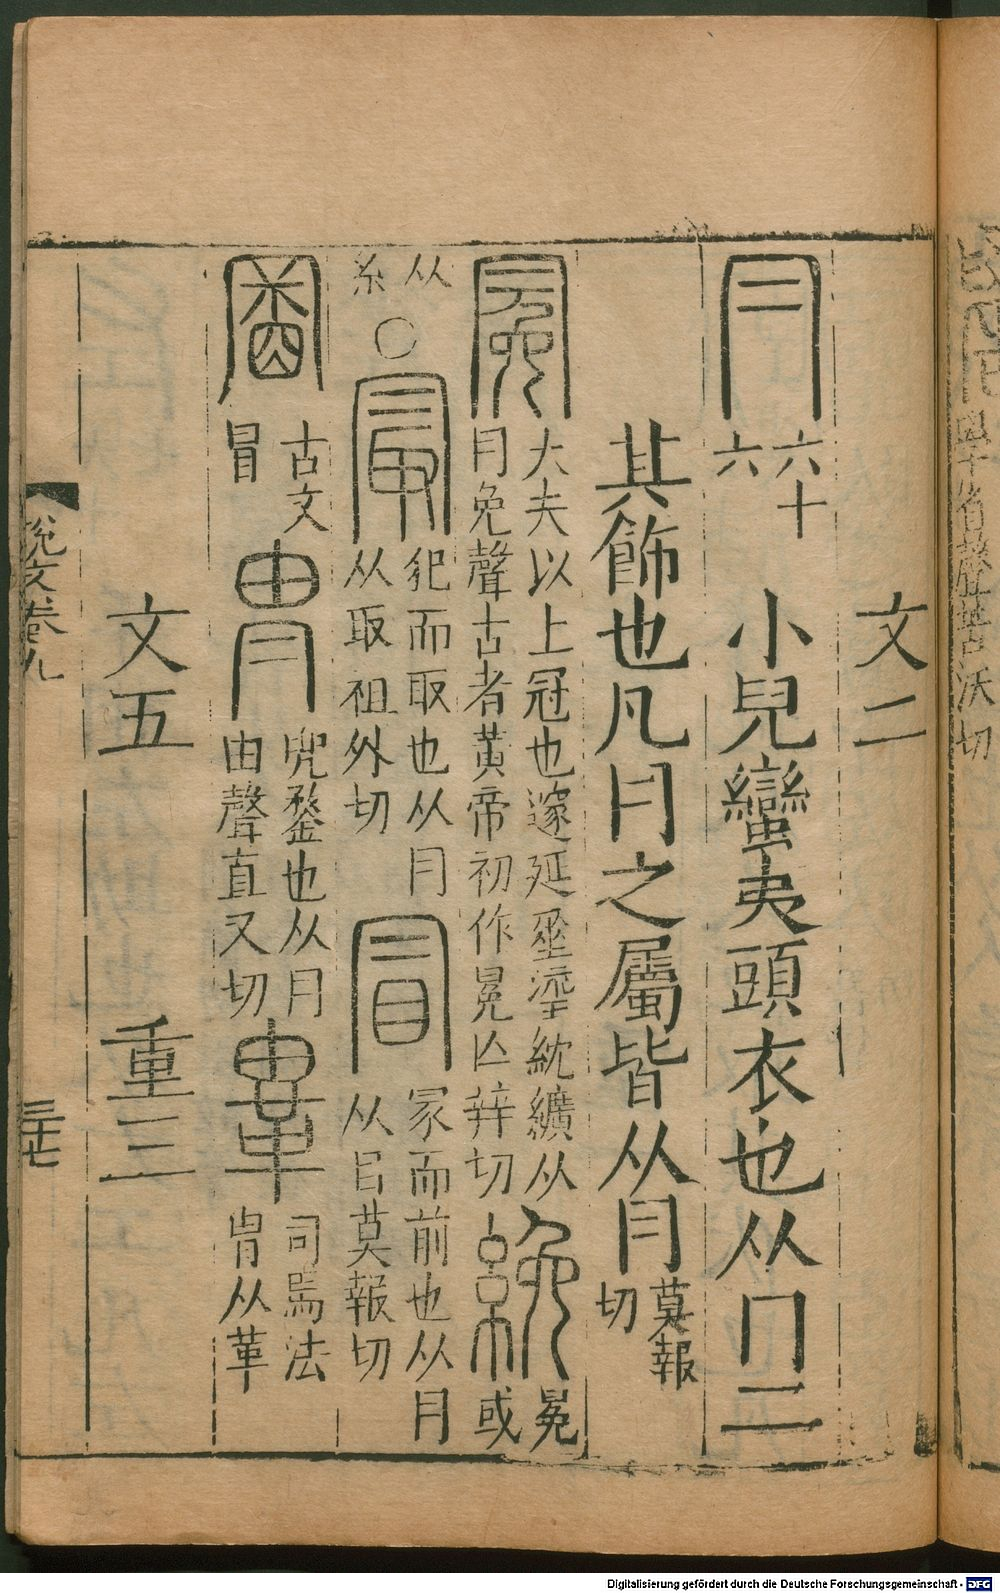 學省聲苦沃切
文二
冃 六十六 小兒蠻夷頭衣也从冂二
其飾也凡冃之屬皆从冃 莫報切
冕 大夫以上冠也邃延垂瀴紞纊从冃免聲古者黃帝初作冕亾辡切 絻 冕或
从糸 ○ 冣 犯而取也从冃从取祖外切 冒 冡而前也从冃从目莫報切
𡇒 古文冒 冑 兜鍪也从冃由聲直又切 𩊄 司馬法冑从革
文五 重三
說文卷九 三十七
Digitalisierung gefördert durch die Deutsche Forschungsgemeinschaft - DFG